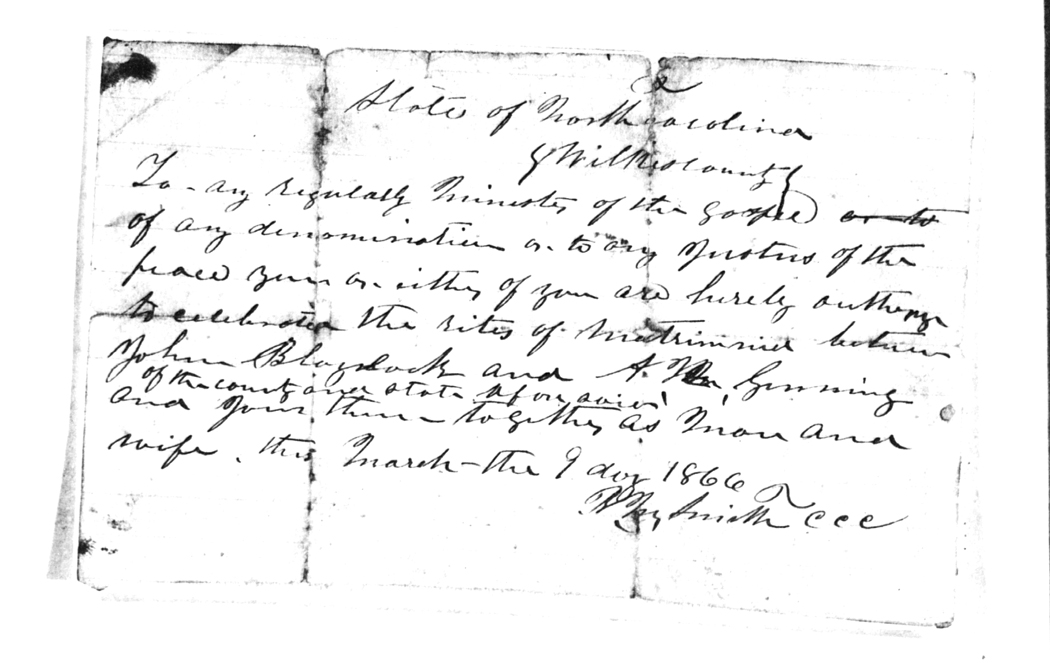 State of North carolina
Wilkes county
To any regularly Minister of the Gospel or to
of any denomination or to any Justus of the
peace you or either of you are hereby
to celebrate the rites of matrimnie between
John Blaylock and A. Ginning
of the county and state afore said
and Join them together as Man and
wife . this March the 9 day 1866
Smith CCC